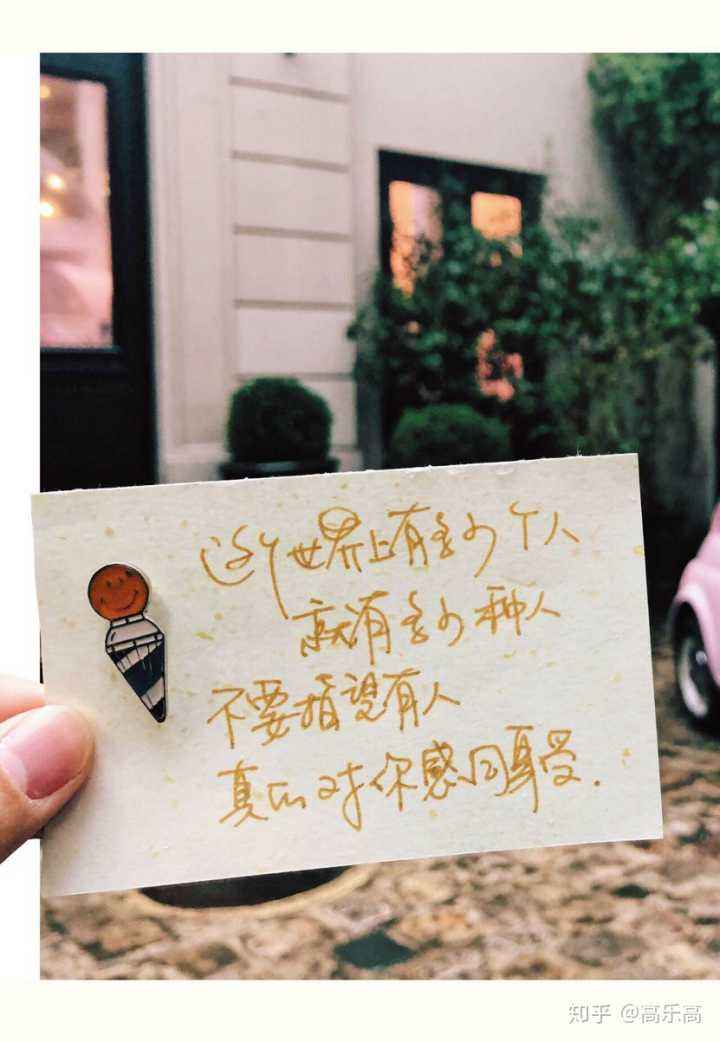 这个世界上有多少个人
就有多少种人
不要指望有人
真的对你感同身受.
知乎 @高乐高